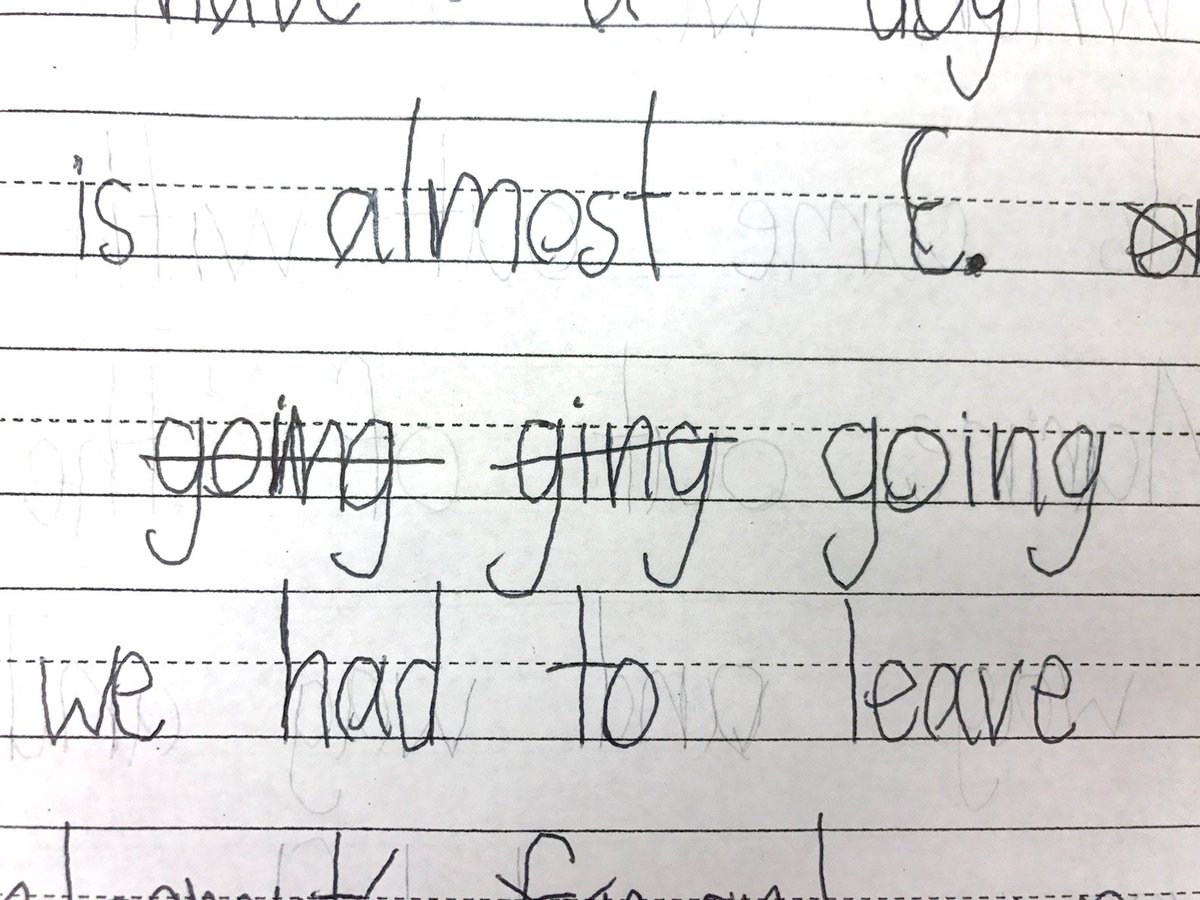 have a dog
is almost 6.
going ging going
we had to leave